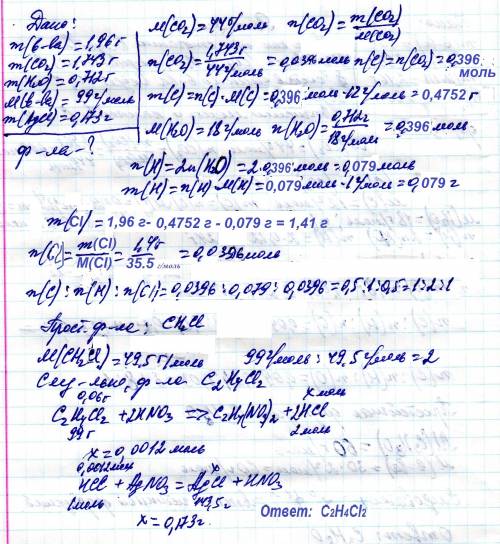 Дано:
m(в-ва)=1,96г
m(CO₂)=1,743г
m(H₂O)=0,712г
M(в-ва)=99г/моль
m(AgCl)=0,173г
ф-ла-?
M(CO₂)=44г/моль n(CO₂)=m(CO₂)/M(CO₂)
n(CO₂)=1,743г/44г/моль=0,0396моль n(C)=n(CO₂)=0,396 моль
m(C)=n(C)·M(C)=0,396 моль·12г/моль=0,4752 г
M(H₂O)=18г/моль n(H₂O)=0,712г/18г/моль=0,396моль
n(H)=2n(H₂O)=2·0,396моль=0,079моль
m(H)=n(H)·M(H)=0,079моль·1г/моль=0,079 г
m(Cl)=1,96 г- 0,4752 г - 0,079 г = 1,41 г
n(Cl)=m(Cl)/M(Cl)=1,4г/35.5 г/моль=0,0396моль
n(C):n(H):n(Cl)=0,0396:0,079:0,0396=0,5:1:0,5=1:2:1
Прост. ф-ла: CH₂Cl
M(CH₂Cl)=49,5г/моль 99г/моль:49,5г/моль=2
ф-ла C₂H₄Cl₂
0,06г x моль
C₂H₄Cl₂ +2HNO₃ => C₂H₄(NO₃)₂ +2HCl
99г 2моль
x=0,0012моль
0,0012моль x
HCl + AgNO₃ = AgCl + HNO₃
1моль 143,5г
x=0,173г.
Ответ: C₂H₄Cl₂